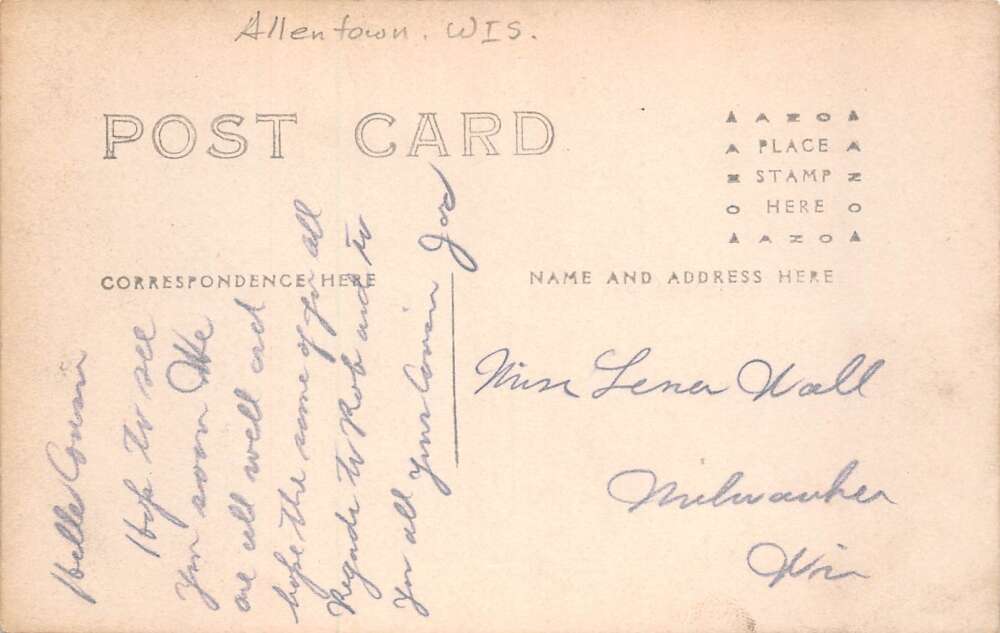 Allentown. WIS.
POST CARD
AZO
PLACE
STAMP
HERE
AZO
CORRESPONDENCE HERE
NAME AND ADDRESS HERE
Hello Cousin
Hope to see
you soon We
are all well and
hope the same of you all
Regards to Rob and to
you all your Cousin
Miss Lener Wall
Milwaukee
Wis